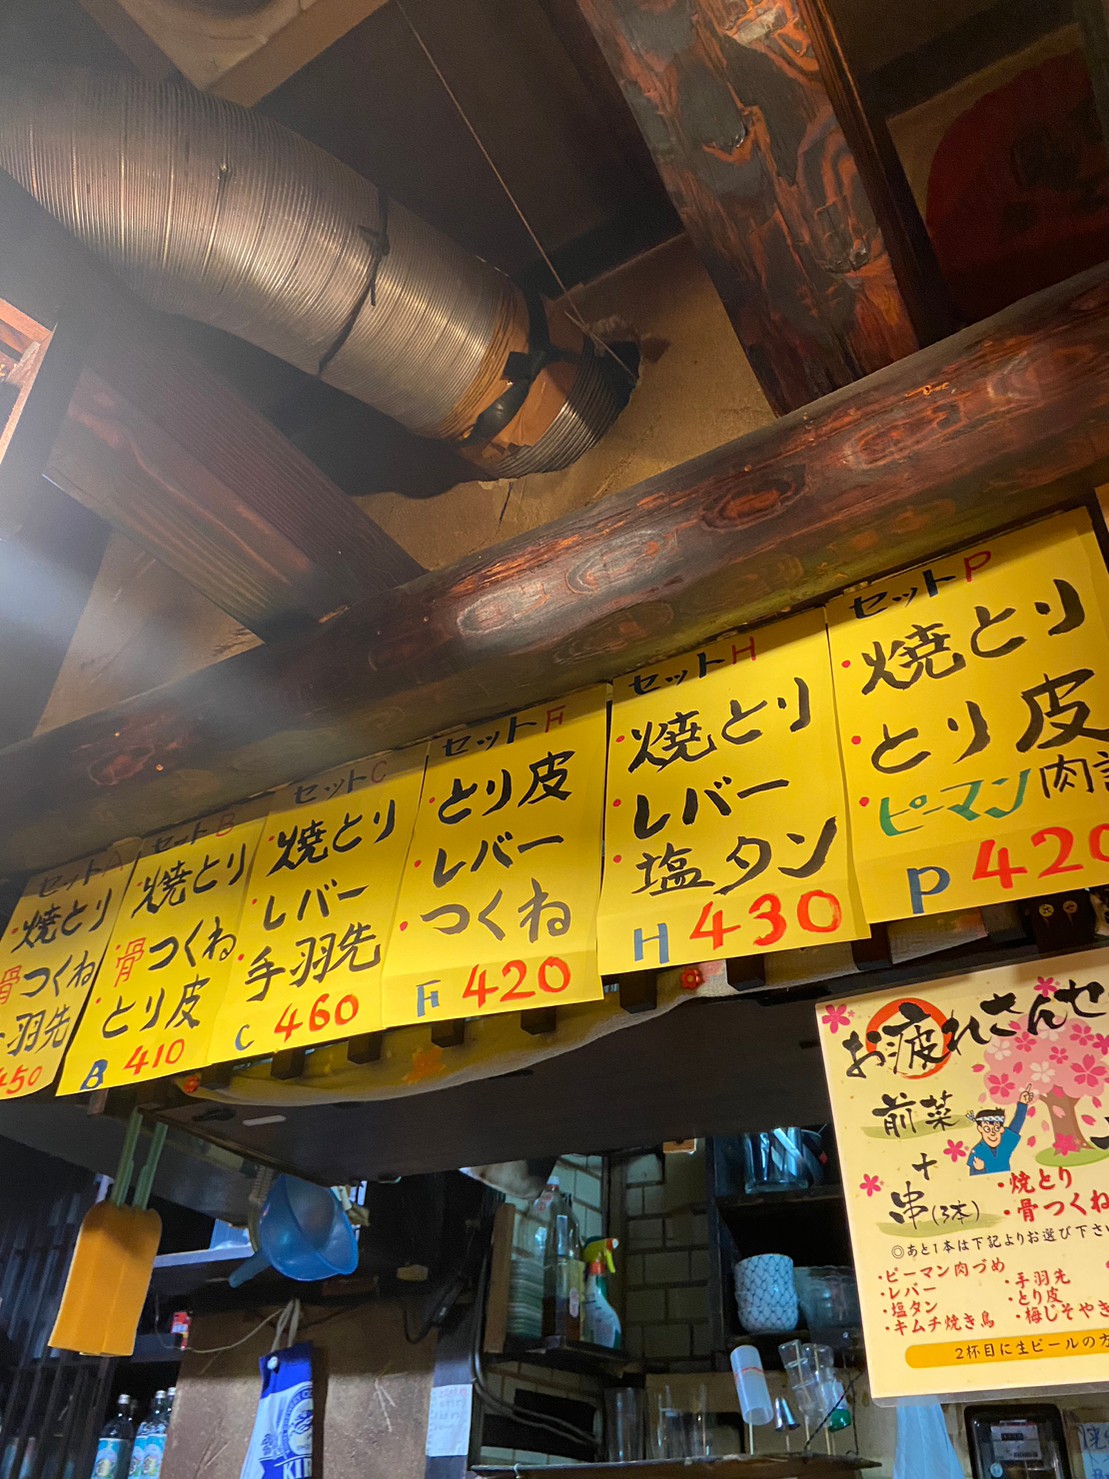 セットA
・焼とり
骨つくね
手羽先
450
セットB
・焼とり
・骨つくね
とり皮
B 410
セットC
・焼とり
・レバー
・手羽先
C 460
セットF
・とり皮
・レバー
・つくね
F 420
セットH
・焼とり
・レバー
・塩タン
H 430
セットP
・焼とり
・とり皮
・ピーマン肉
P 420
お疲れさんセ
前菜
+
串(3本)
・焼とり
・骨つくね
◎あと1本は下記よりお選び下さい
・ピーマン肉づめ
・レバー
・塩タン
・キムチ焼き鳥
・手羽先
・とり皮
・梅じそやき
2杯目に生ビールの方